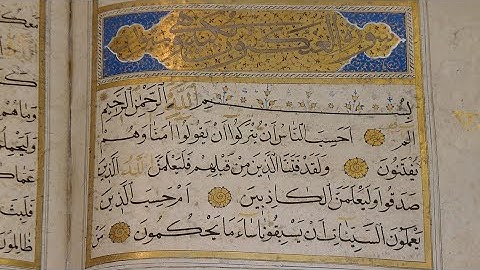 سورة العنكبوت
بسم الله الرحمن الرحيم
الم احسب الناس ان يتركوا ان يقولوا امنا وهم لا
يفتنون ولقد فتنا الذين من قبلهم فليعلمن الله الذين
صدقوا وليعلمن الكاذبين ام حسب الذين
يعملون السيئات ان يسبقونا ساء ما يحكمون من
معكم
وما هم
ظالمون